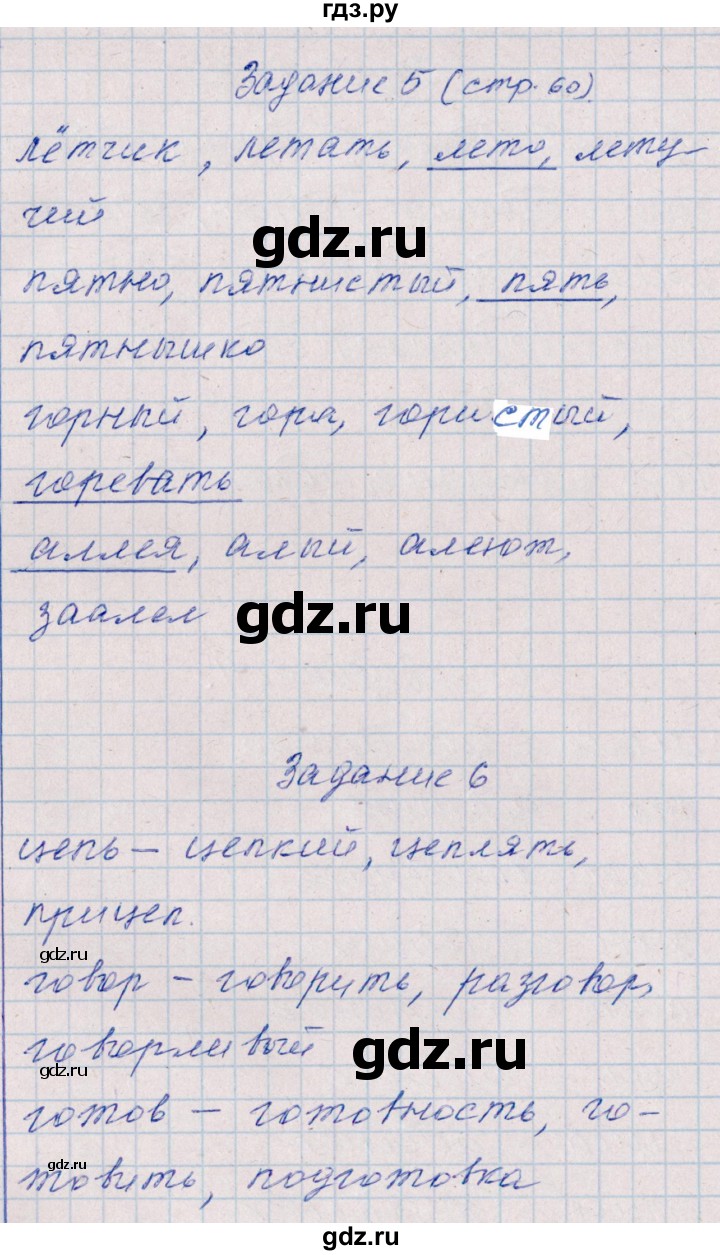 гдз.ру
Задание 5 (стр. 60).
лётчик, летать, лето, лету-
чий
gdz.ru
пятно, пятнистый, пять,
пятнышко
горный, гора, гористый,
горевать
аллея, алый, алеют,
заалел
gdz.ru
Задание 6
цепь – цепкий, цеплять,
прицеп.
gdz.ru
говор – говорить, разговор,
говорливый
gdz.ru
gdz.ru
готов – готовность, го-
товить, подготовка
gdz.ru
gdz.ru